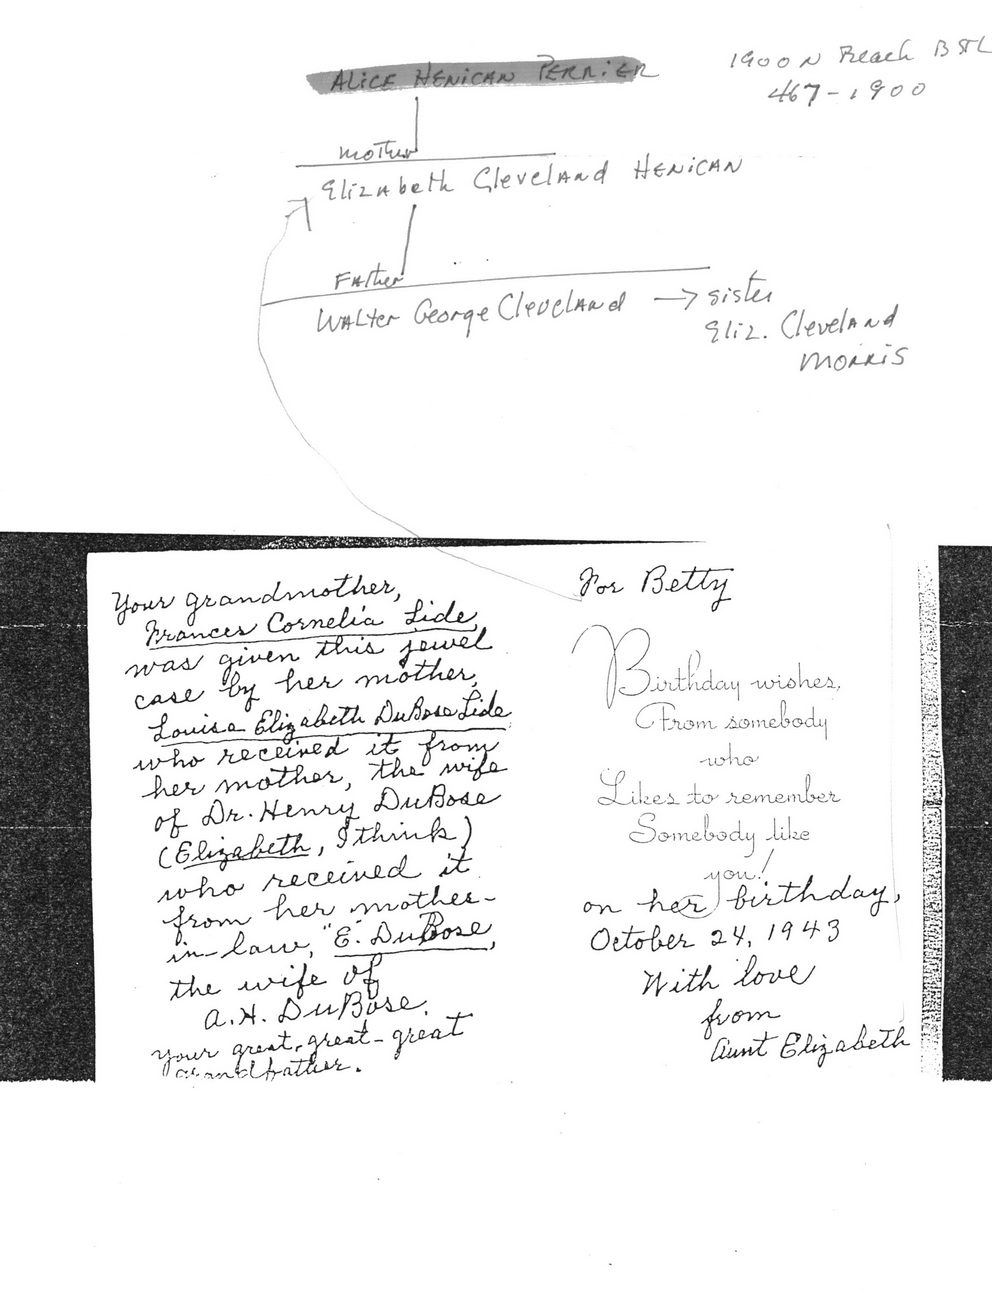 ALICE HENICAN PERRIER
1900 N Beach BSTL
467-1900
mother
Elizabeth Cleveland HENICAN
Father
Walter George Cleveland → sister
Eliz. Cleveland
MORRIS
Your grandmother,
Frances Cornelia Lide,
was given this jewel
case by her mother,
Louisa Elizabeth DuBose Lide
who received it from
her mother, the wife
of Dr. Henry DuBose
(Elizabeth, I think)
who received it
from her mother-
in-law, "E. DuBose,
the wife of
A.H. DuBose.
your great-great-great
grandfather.
For Betty
Birthday wishes,
From somebody
who
Likes to remember
Somebody like
you!
on her birthday,
October 24, 1943
With love
from
Aunt Elizabeth